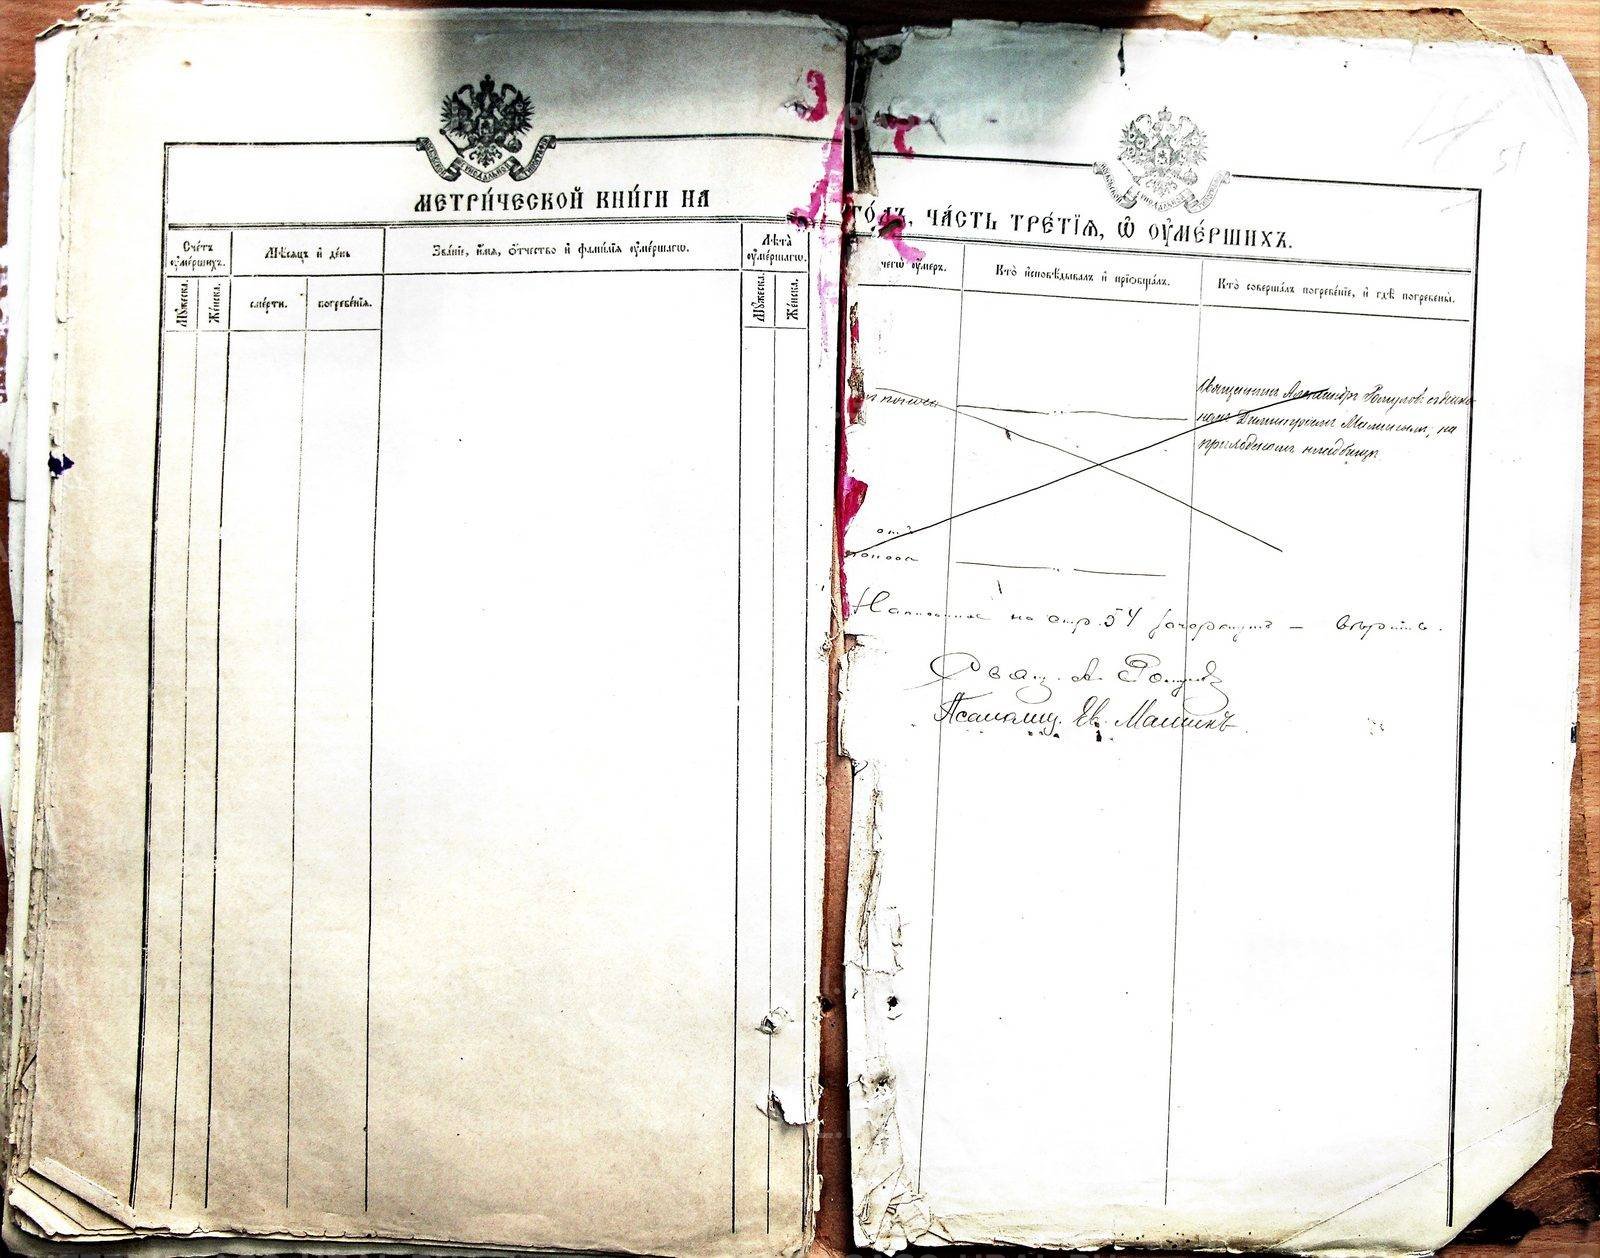 МЕТРИ́ЧЕСКОЙ КНИ́ГИ НА
Сче́тъ ᲂу҆ме́ршихъ.
Мꙋ́жеска.
Же́нска.
Мѣ́сяцъ и҆ де́нь
сме́рти.
погребе́нїѧ.
Зва́нїе, и҆́мѧ, ѻ҆́тчество и҆ фамѝлїѧ ᲂу҆ме́ршагѡ.
Лѣ́та ᲂу҆ме́ршагѡ.
Мꙋ́жеска.
Же́нска.
ГО́ДЪ, ЧА́СТЬ ТРЕ́ТЇѦ, Ѿ ОУ҆МЕ́РШИХЪ.
51
чегѡ̀ ᲂу҆́меръ.
Кто̀ и҆сповѣ́дывалъ и҆ прїѡбща́лъ.
Кто̀ соверша́лъ погребе́нїе, и҆ гдѣ̀ погребены̀.
поноса
Священникъ Александръ Ромуловъ съ діако-
номъ Димитріемъ Малишевымъ, на
приходскомъ кладбищѣ
отъ
поноса
Написанное на стр. 54 зачеркнуто — вѣрить.
Свящ. А. Ромуловъ
Псаломщ. Ев. Малишевъ